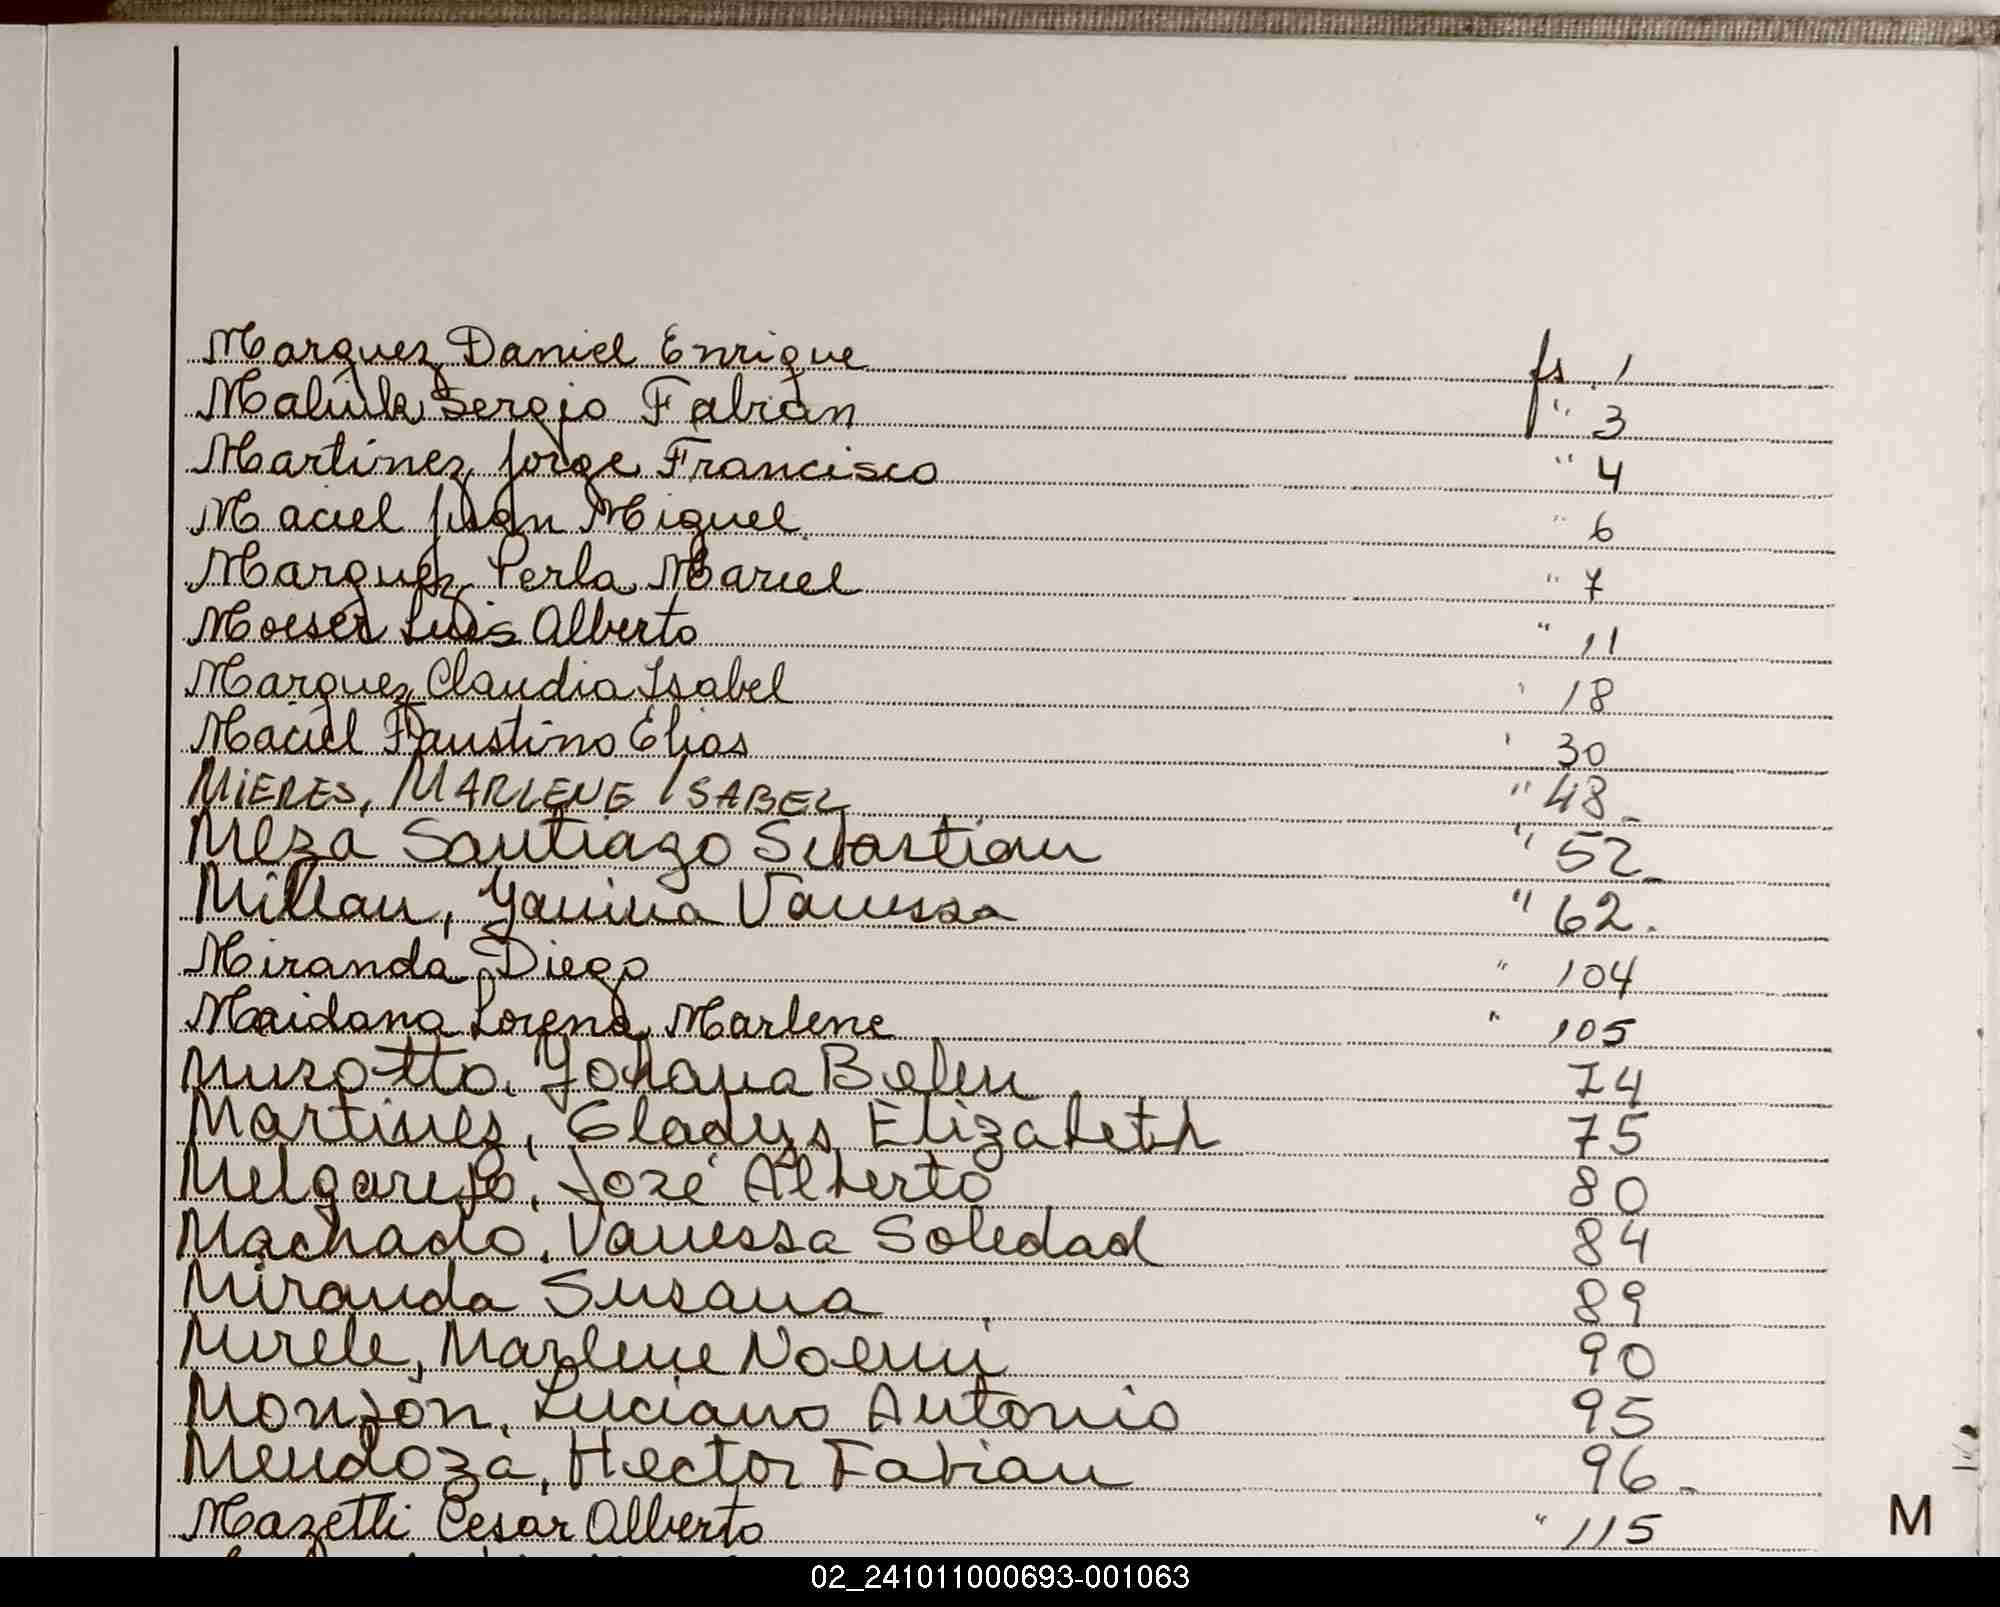 Marquez Daniel Enrique fs. 1
Maliuk Sergio Fabian " 3
Martinez Jorge Francisco " 4
Maciel Juan Miguel " 6
Marquez Perla Mariel " 7
Moeser Luis Alberto " 11
Marquez Claudia Isabel ' 18
Maciel Faustino Elias ' 30
MIERES, MARLENE ISABEL " 48_
Meza Santiago Sebastian " 52_
Millan, Yanina Vanessa " 62.
Miranda Diego " 104
Maidana Lorena Marlene " 105
Murotto, Yohana Belen 74
Martines, Gladys Elizabeth 75
Melgarejo, José Alberto 80
Machado, Vanessa Soledad 84
Miranda Susana 89
Mirele, Marlene Noemi 90
Monzón, Luciano Antonio 95
Mendoza, Hector Fabian 96_
Mazetti Cesar Alberto " 115
M
02_241011000693-001063